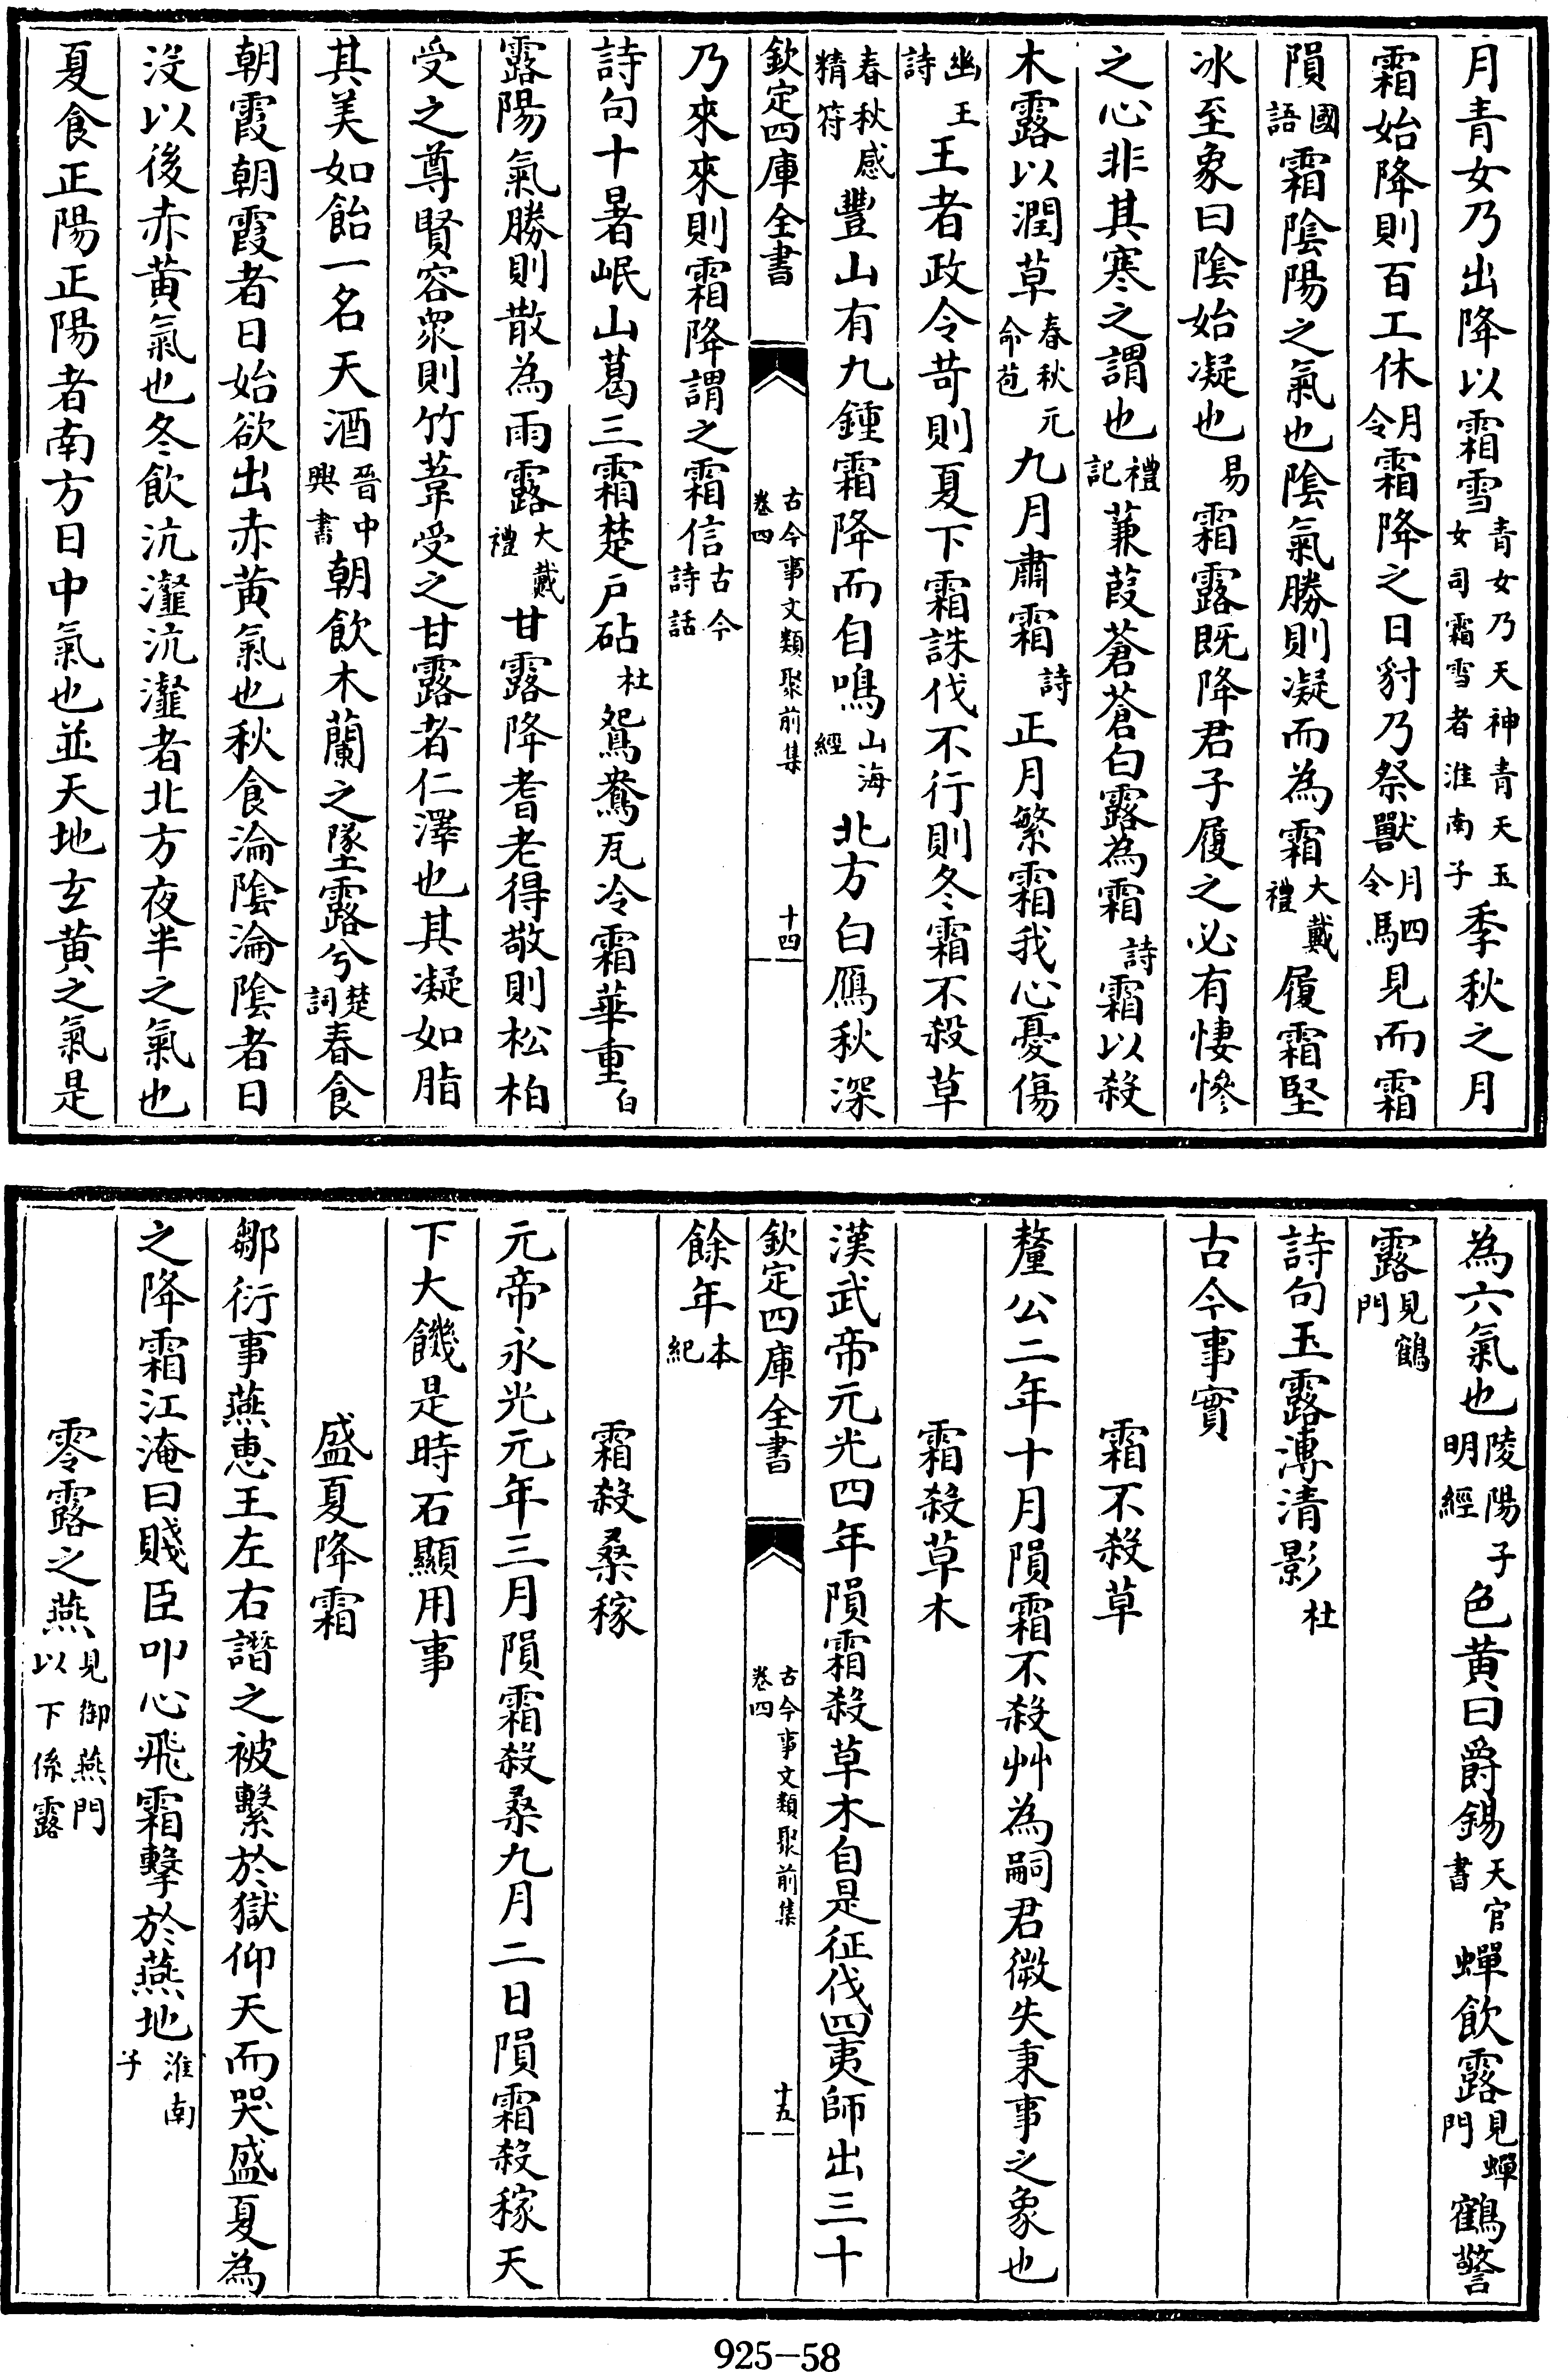 月青女乃出降以霜雪青女乃天神青天玉女司霜雪者淮南子季秋之月
霜始降則百工休月令霜降之日豺乃祭獸月令駟見而霜
隕國語霜隂陽之氣也隂氣勝則凝而為霜大戴禮履霜堅
冰至象曰隂始凝也易霜露既降君子履之必有悽慘
之心非其寒之謂也禮記蒹葭蒼蒼白露為霜詩霜以殺
木露以潤草春秋元命苞九月肅霜詩正月繁霜我心憂傷
幽王詩王者政令苛則夏下霜誅伐不行則冬霜不殺草
春秋感精符豐山有九鍾霜降而自鳴山海經北方白鴈秋深
欽定四庫全書 古今事文類聚前集卷四 十四
乃來來則霜降謂之霜信古今詩話
詩句十暑岷山葛三霜楚戶砧杜鴛鴦瓦冷霜華重白
露陽氣勝則散為雨露大戴禮甘露降耆老得敬則松柏
受之尊賢容衆則竹葦受之甘露者仁澤也其凝如脂
其美如飴一名天酒晉中興書朝飲木蘭之墜露兮楚詞春食
朝霞朝霞者日始欲出赤黄氣也秋食淪隂淪隂者日
沒以後赤黄氣也冬飲沆瀣沆瀣者北方夜半之氣也
夏食正陽正陽者南方日中氣也並天地玄黄之氣是
為六氣也陵陽子明經色黄曰爵錫天官書蟬飲露見蟬門鶴警
露見鶴門
詩句玉露漙清影杜
古今事實
霜不殺草
釐公二年十月隕霜不殺艸為嗣君微失秉事之象也
霜殺草木
漢武帝元光四年隕霜殺草木自是征伐四夷師出三十
欽定四庫全書 古今事文類聚前集卷四 十五
餘年本紀
霜殺桑稼
元帝永光元年三月隕霜殺桑九月二日隕霜殺稼天
下大饑是時石顯用事
盛夏降霜
鄒衍事燕惠王左右譖之被繫於獄仰天而哭盛夏為
之降霜江淹曰賤臣叩心飛霜擊於燕地淮南子
零露之燕見御燕門以下係露
925-58